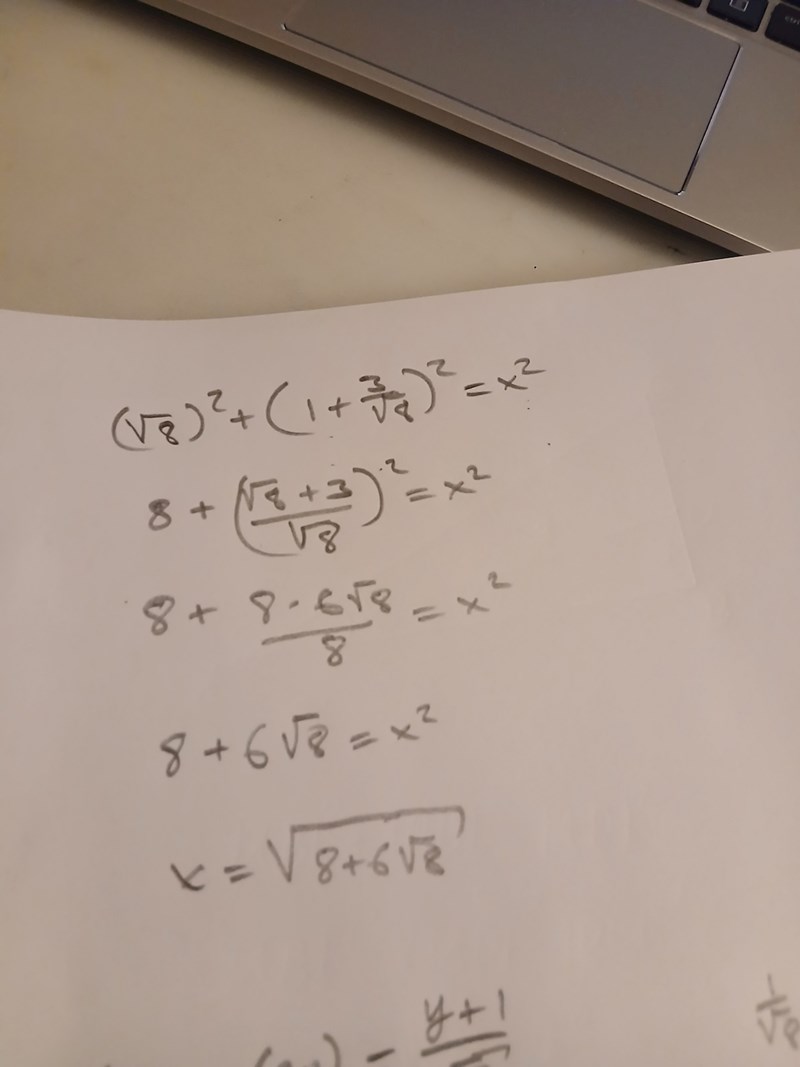 (√8)² + (1 + 3/√8)² = x²
8 + ((√8 + 3)/√8)² = x²
8 + (8 · 6√8)/8 = x²
8 + 6√8 = x²
x = √(8+6√8)
y+1
1/√8